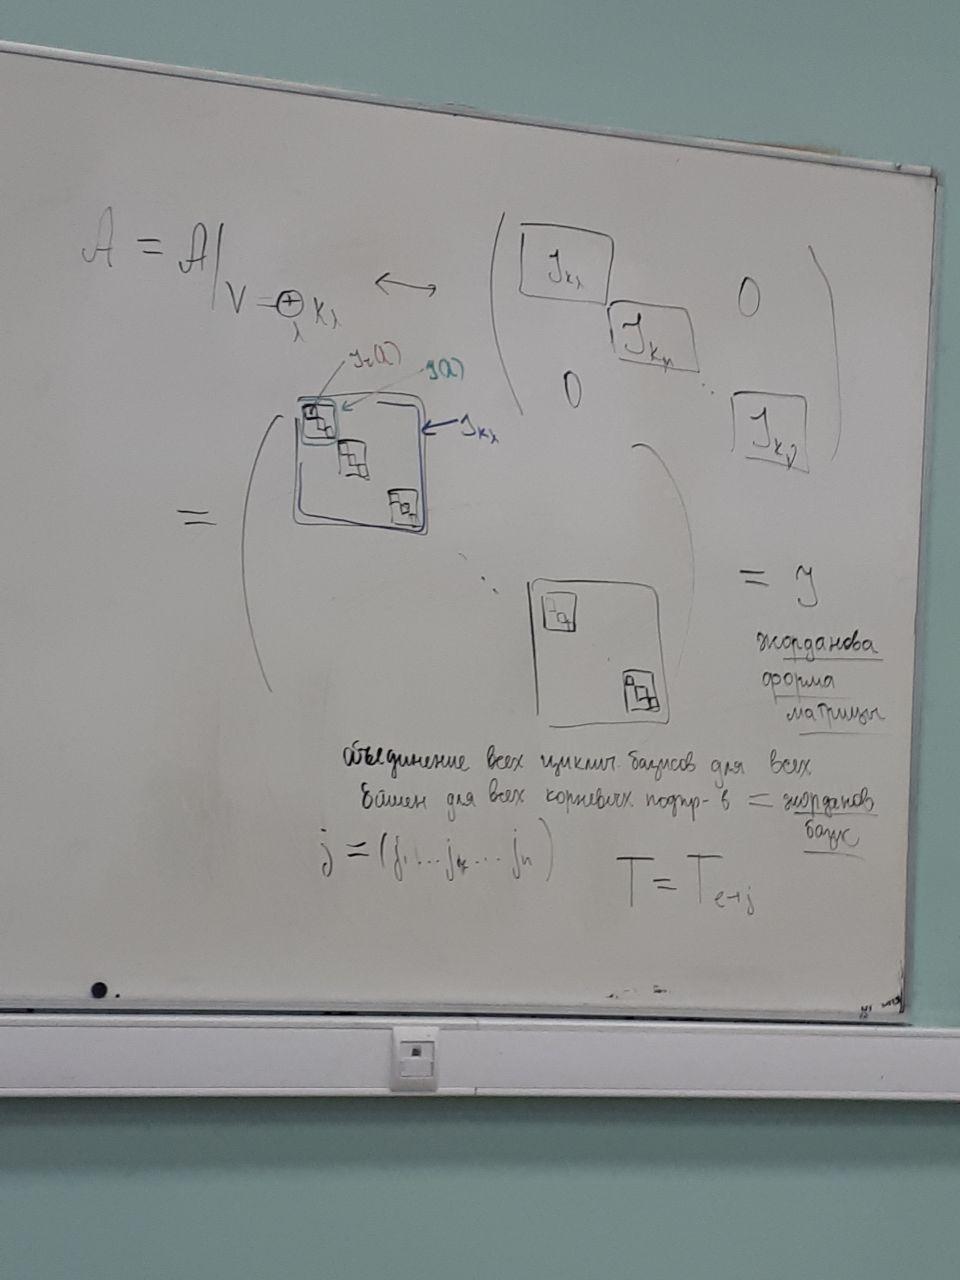 𝒜 = 𝒜|_{V = ⊕_λ K_λ} ↔ ( J_{K_λ} 0
J_{K_μ}
0 ⋱ J_{K_ν} )
J_r(λ) J(λ)
J_{K_λ}
= ( ⋱ ) = J
жорданова
форма
матрицы
объединение всех циклич. базисов для всех
башен для всех корневых подпр-в = жорданов
базис
j = (j₁ ... j_k ... j_n) T = T_{e→j}